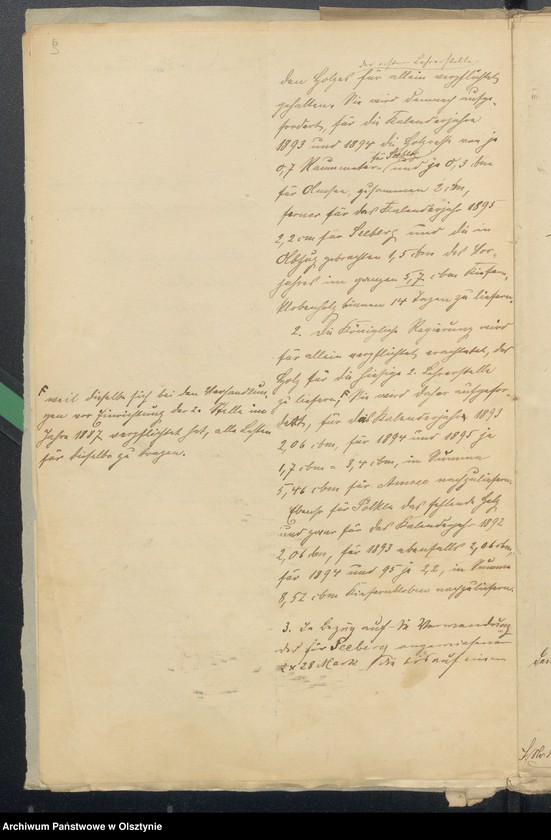 der ersten Lehrerstelle
den Holzes für allein verpflichtet
gehalten. Sie wird demnach aufge-
fordert, für die Kalenderjahre
1893 und 1894 die Holzreste von je
0,7 Raummeter für Pölkle und je 0,3 cbm
für zusammen 2 cbm,
ferner für das Kalenderjahr 1895
2,2 cm für Seeberg und die in
Abzug gebrachten 1,5 cbm des Vor-
jahres im ganzen 5,7 cbm Kiefern-
klobenholz binnen 14 Tagen zu liefern.
2. Die Königliche Regierung wird
für allein verpflichtet erachtet, das
Holz für die hiesige 2. Lehrerstelle
zu liefern, F Sie wird daher aufgefor-
dert, für das Kalenderjahr 1893
2,06 cbm, für 1894 und 1895 je
1,7 cbm = 3,4 cbm, in Summa
5,46 cbm für nachzuliefern.
Ebenso für Pölkle das fehlende Holz
und zwar für das Kalenderjahr 1892
2,06 cbm, für 1893 ebenfalls 2,06 cbm,
für 1894 und 95 je 2,2, in Summa
8,52 cbm Kiefernkloben nachzuliefern.
3. In Bezug auf die Verwendung
der für Seeberg angewiesenen
2 x 28 Mark die bis auf einen
F weil dieselbe sich bei den Verhandlun-
gen vor Einrichtung der 2. Stelle im
Jahre 1887 verpflichtet hat, alle Lasten
für dieselbe zu tragen.
Archiwum Państwowe w Olsztynie